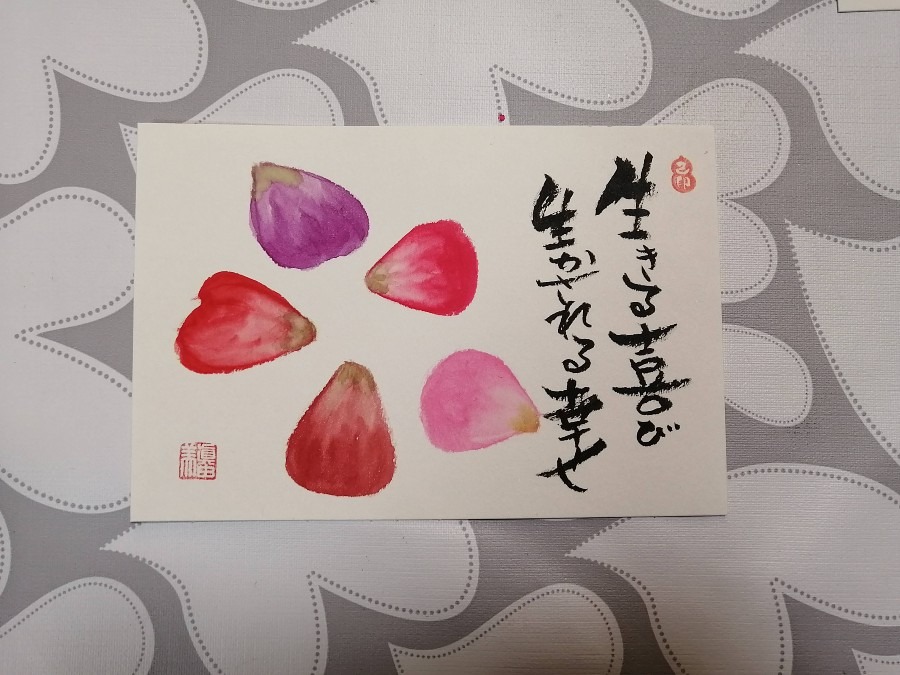 生きる喜び
生かされる幸せ